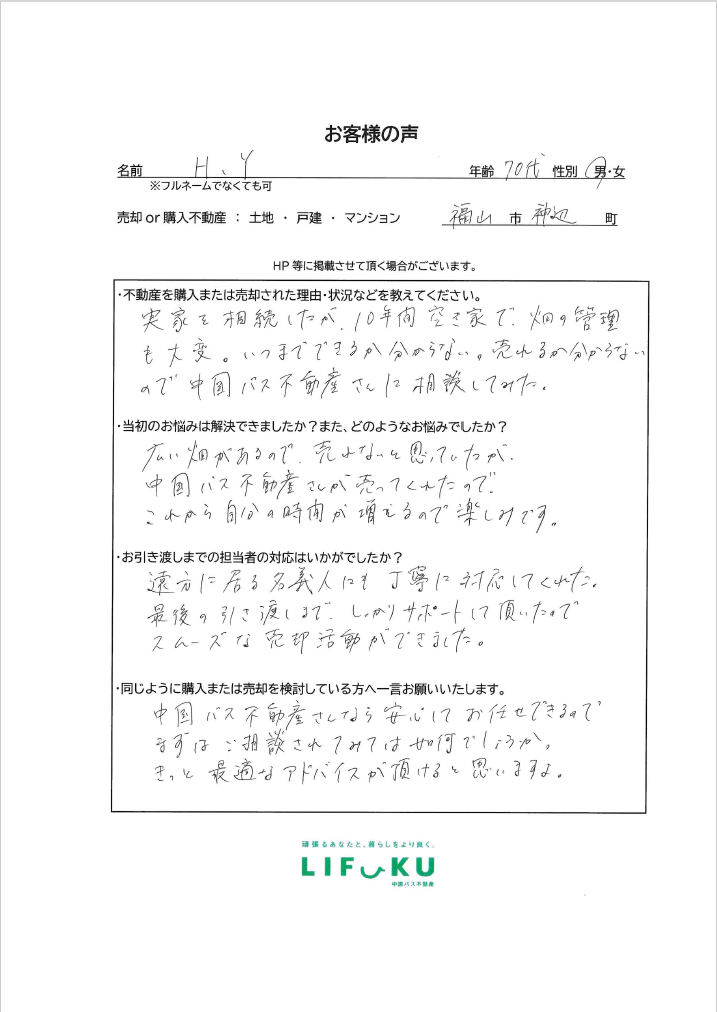 お客様の声
名前 H、Y 年齢 70代 性別 男・女
※フルネームでなくても可
売却or購入不動産 ; 土地 ・ 戸建 ・ マンション 福山 市 神辺 町
HP等に掲載させて頂く場合がございます。
・不動産を購入または売却された理由・状況などを教えてください。
実家を相続したが、10年間空き家で、畑の管理
も大変。いつまでできるか分からない。売れるか分からない
ので中国バス不動産さんに相談してみた。
・当初のお悩みは解決できましたか?また、どのようなお悩みでしたか?
広い畑があるので、売れないと思っていたが、
中国バス不動産さんが売ってくれたので、
これから自分の時間が増えるので楽しみです。
・お引き渡しまでの担当者の対応はいかがでしたか?
遠方に居る名義人にも丁寧に対応してくれた。
最後の引き渡しまで、しっかりサポートして頂いたので
スムーズな売却活動ができました。
・同じように購入または売却を検討している方へ一言お願いいたします。
中国バス不動産さんなら安心してお任せできるので
まずはご相談されてみては如何でしょうか。
きっと最適なアドバイスが頂けると思いますよ。
頑張るあなたと、暮らしをより良く。
LIFUKU
中国バス不動産